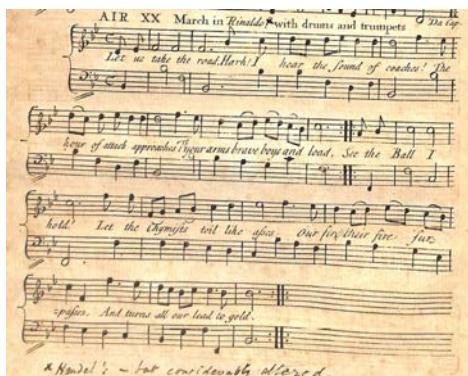 Da Cap
AIR XX March in Rinaldo* with drums and trumpets
Let us take the road. Hark! I hear the sound of coaches! The
hour of attack approaches T' your arms brave boys and load. See the Ball I
hold! Let the Chymists toil like asses Our fire their fire sur
=passes. And turns all our lead to gold.
* Handel's - but considerably altered.